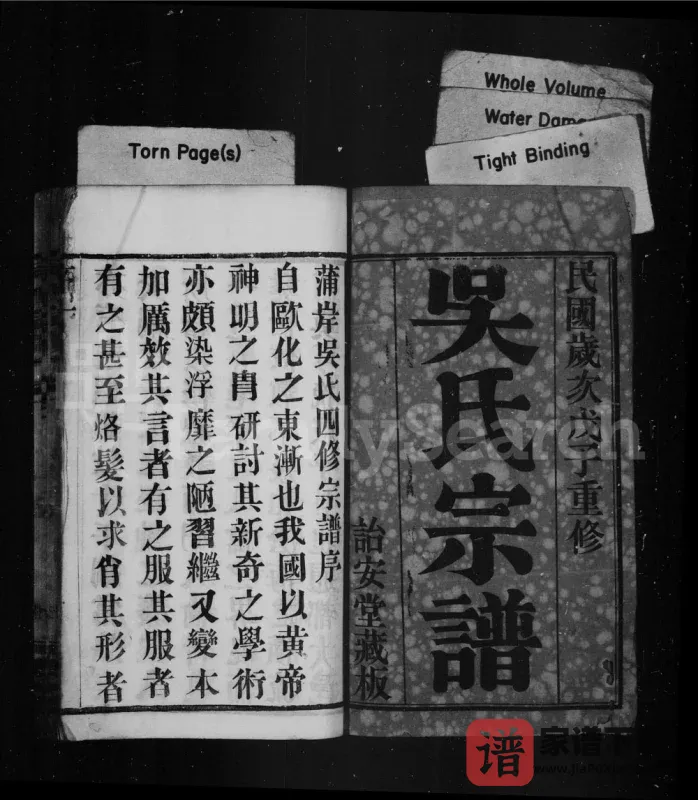 Whole Volume
Water Dam
Torn Page(s)
Tight Binding
民國歲次戊子重修
吳氏宗譜
詒安堂藏板
蒲岸吳氏四修宗譜序
自歐化之東漸也我國以黃帝
神明之冑研討其新奇之學術
亦頗染浮靡之陋習繼又變本
加厲效其言者有之服其服者
有之甚至烙髮以求肖其形者
Search
谱
家谱